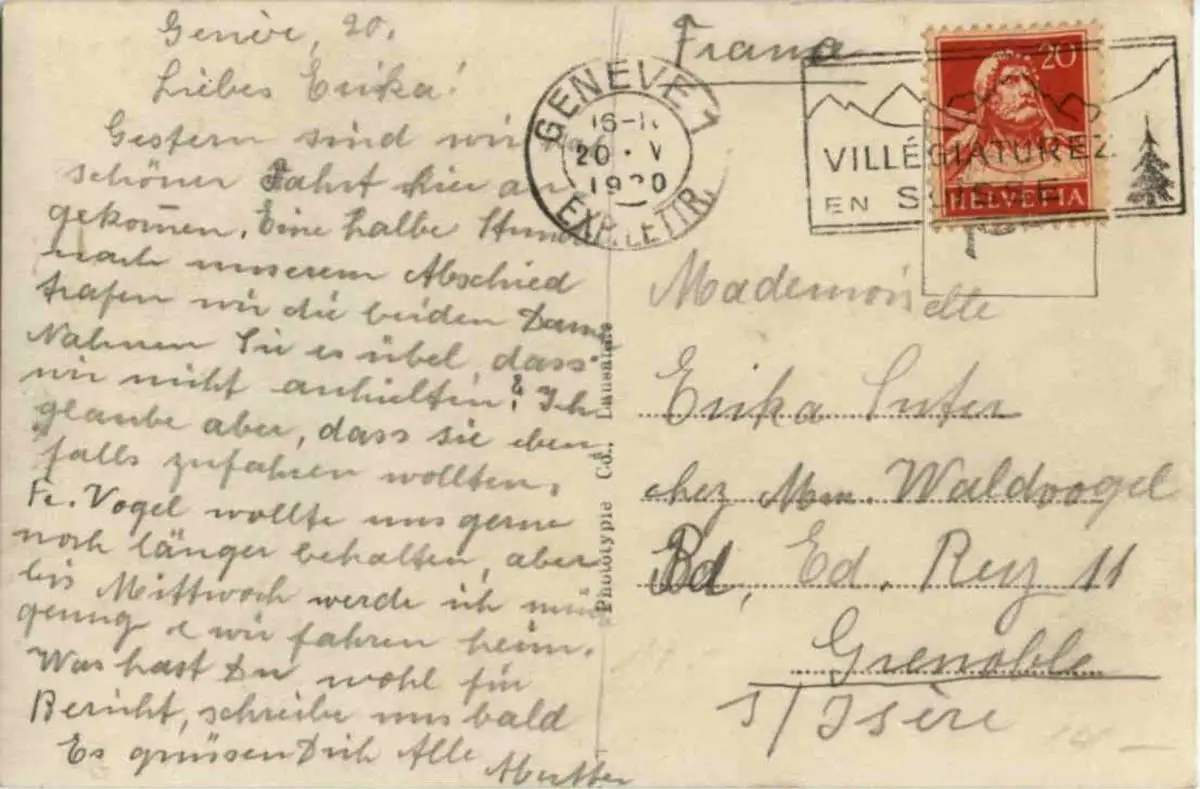 Genève, 20.
Liebes Erika!
Gestern sind wir
schöner Fahrt hier an
gekom̄en. Eine halbe Stund
nach unserem Abschied
trafen wir die beiden Dam
Nahmen Sie es übel, dass
wir nicht anhielten? Ich
glaube aber, dass sie eben
falls zufahren wollten.
Fr. Vogel wollte uns gerne
noch länger behalten, aber
bis Mittwoch werde ich
genug & wir fahren heim.
Was hast Du wohl für
Bericht, schreibe uns bald
Es grüssen Dich Alle
Mutter
Phototypie Co., Lausanne
GENÈVE 1
20 · V
EXP. LETTR.
VILLÉGIATUREZ
EN SUISSE
20
HELVETIA
Mademoiselle
Erika Suter
chez Mm. Waldvogel
Bd. Ed. Rey 11
Grenoble
s/ Isère